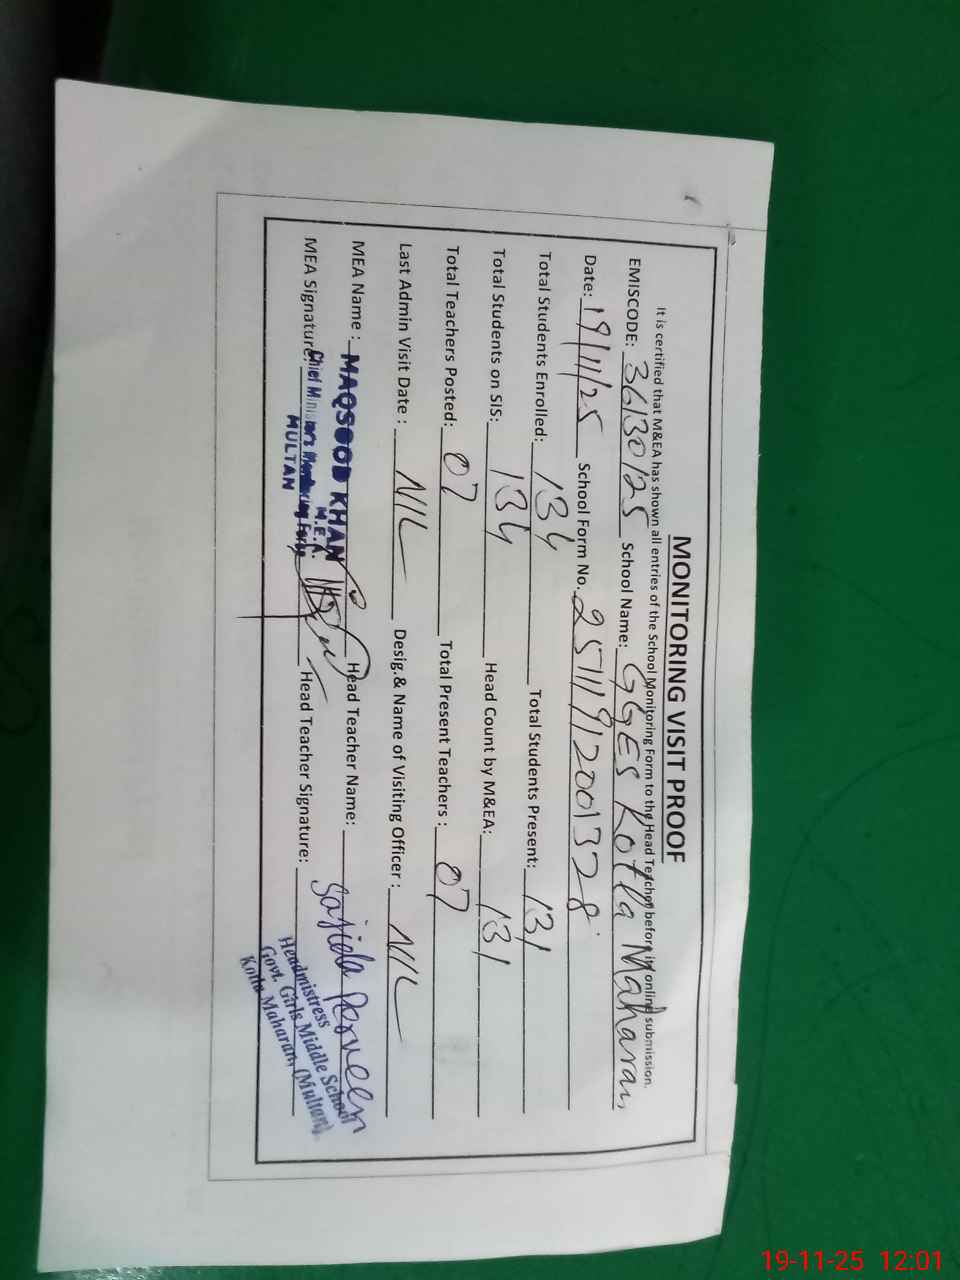 MONITORING VISIT PROOF
It is certified that M&EA has shown all entries of the School Monitoring Form to the Head Teacher before its online submission.
EMISCODE: 36130125 School Name: GGES Kotla Maharan,
Date: 19/11/25 School Form No. 25111912001328
Total Students Enrolled: 134 Total Students Present: 131
Total Students on SIS: 134 Head Count by M&EA: 131
Total Teachers Posted: 07 Total Present Teachers : 07
Last Admin Visit Date : NIL Desig.& Name of Visiting Officer : NIL
MEA Name : MAQSOOD KHAN Head Teacher Name: Sajida Perveen
M.E.A.
MEA Signature: Chief Minister's Monitoring Force Head Teacher Signature:
MULTAN
Headmistress
Govt. Girls Middle School
Kotla Maharan, (Multan)
19-11-25 12:01